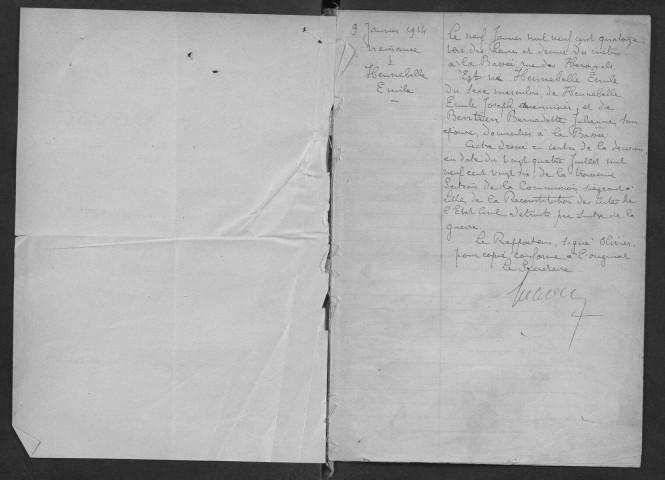 9 Janvier 1914
naissance
d
Hennebelle
Emile
Le neuf Janvier mil neuf cent quatorze
vers dix heures et demie du matin
à La Bassée, rue des
Est né Hennebelle Emile
du sexe masculin, de Hennebelle
Emile Joseph, et de
Bernadette Julienne, son
épouse, domiciliés à La Bassée
Acte dressé en vertu de la décision
en date du vingt quatre Juillet mil
neuf cent vingt six, de la troisième
Section de la Commission siégeant à
Lille de la Reconstitution des actes de
l'Etat Civil détruits par suite de la
guerre.
Le Rapporteur, signé Olivier.
pour copie conforme à l'original
Le Secrétaire